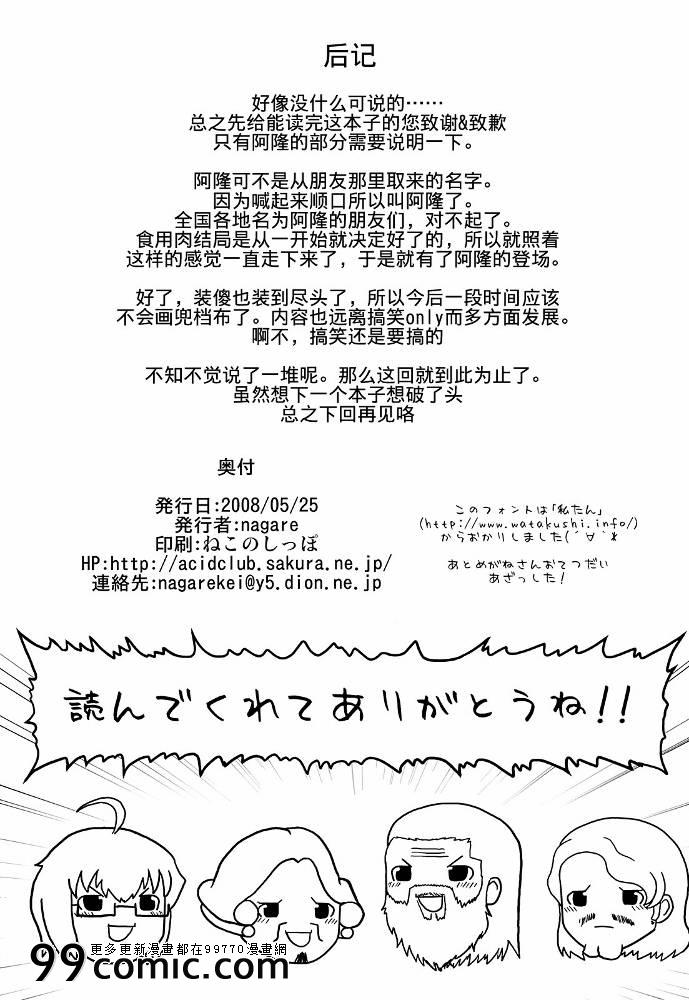 后记
好像没什么可说的……
总之先给能读完这本子的您致谢&致歉
只有阿隆的部分需要说明一下。
阿隆可不是从朋友那里取来的名字。
因为喊起来顺口所以叫阿隆了。
全国各地名为阿隆的朋友们，对不起了。
食用肉结局是从一开始就决定好了的，所以就照着
这样的感觉一直走下来了，于是就有了阿隆的登场。
好了，装傻也装到尽头了，所以今后一段时间应该
不会画兜档布了。内容也远离搞笑only而多方面发展。
啊不，搞笑还是要搞的
不知不觉说了一堆呢。那么这回就到此为止了。
虽然想下一个本子想破了头
总之下回再见咯
奥付
発行日:2008/05/25
発行者:nagare
印刷:ねこのしっぽ
HP:http://acidclub.sakura.ne.jp/
連絡先:nagarekei@y5.dion.ne.jp
このフォントは「私たん」
(http://www.watakushi.info/)
からおかりしました(´∀｀*
あとめがねさんおてつだい
あざっした!
読んでくれてありがとうね!!
更多更新漫畫都在99770漫畫網
99comic.com